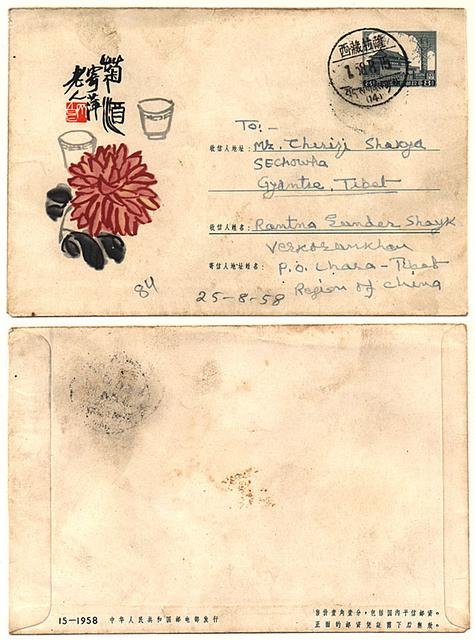 菊酒
寄萍
老人
西藏拉薩
(14)
8
To:-
收信人地址: Mr. Cheriji Shakya
Sechowha
Gyantse, Tibet
收信人姓名: Rantna Sunder Shayk
寄信人地址姓名: P.O. Lhasa - Tibet
Region of China
84
25-8-58
15—1958 中华人民共和国邮电部发行
售价壹角壹分,包括国内平信邮资。
正面的邮资凭证剪下后無效。